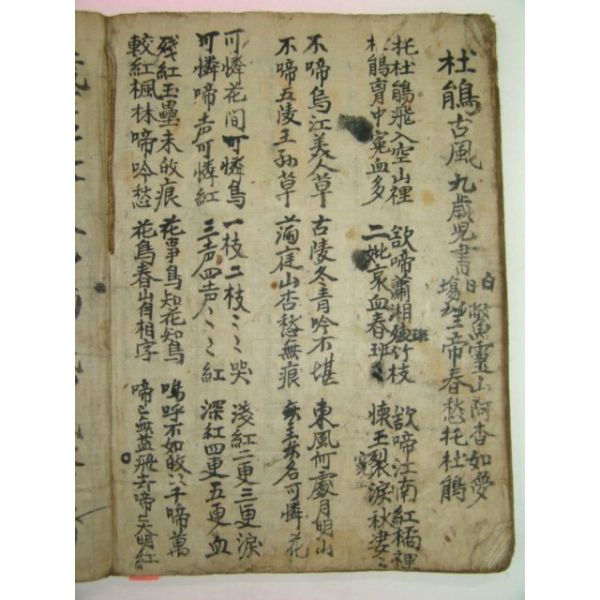 杜鵑古風九歲児書
白日鱉靈山阿杳如夢
望帝春愁托杜鵑
托杜鵑飛入空山裡 欲啼瀟湘班竹枝 欲啼江南紅橘裡
杜鵑胷中寃血多 二妣哀血春班〻 懐王裂淚秋凄〻
不啼烏江美人草 古陵冬青吟不堪 東風何處月明山
不啼五陵王孫草 滿庭山杏愁無痕 無主無名可憐花
可憐花间可憐鳥 一枝二枝〻〻哭 淺紅二更三更淚
可憐啼声可憐紅 三声四声〻〻紅 深紅四更五更血
残紅玉壘未的痕 花事鳥知花知鳥 嗚呼不如的〻千啼萬
較紅楓林啼吟愁 花鳥春山自相字 啼〻無益飛去啼〻天明紅